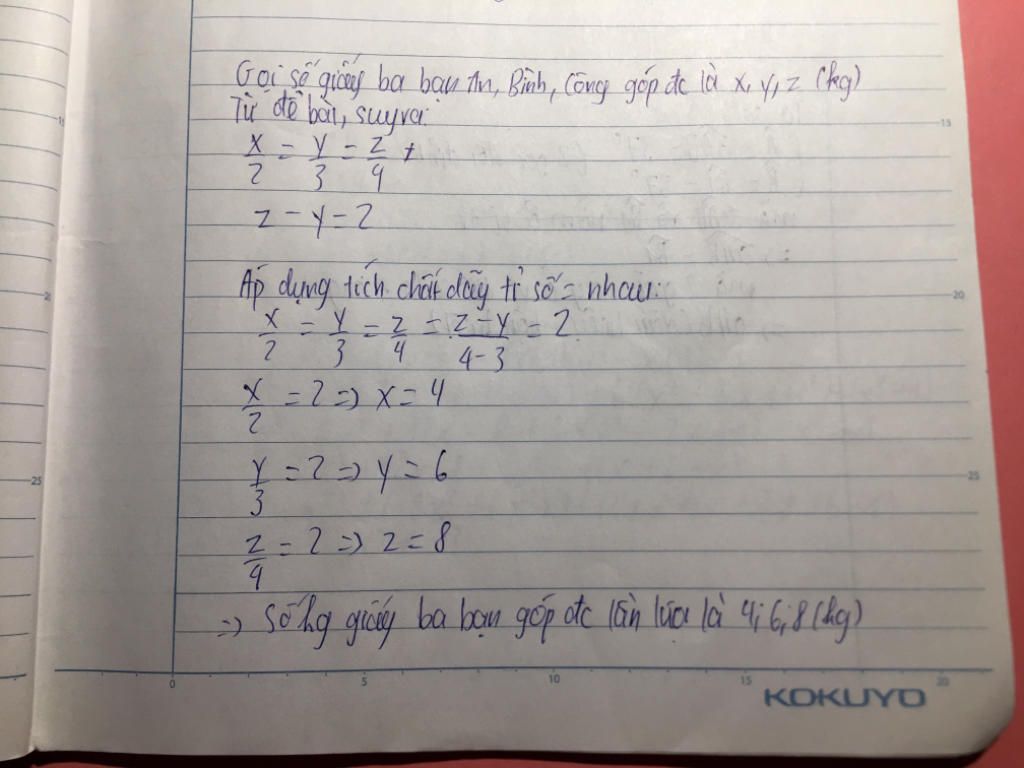 Gọi số giấy ba bạn An, Bình, Công góp đc là x, y, z (kg)
Từ đề bài, suy ra:
x/2 = y/3 = z/4
z - y = 2
Áp dụng tích chất dãy tỉ số = nhau:
x/2 = y/3 = z/4 = z-y/4-3 = 2
x/2 = 2 => x = 4
y/3 = 2 => y = 6
z/4 = 2 => z = 8
=> Số kg giấy ba bạn góp đc lần lựa là 4; 6; 8 (kg)
15
20
25
25
0 5 10 15 20
KOKUYO